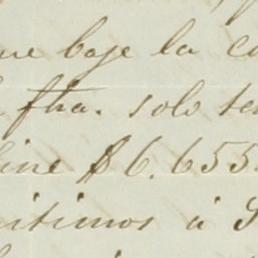 que baje la co
fha. solo te
line $6.655.
itimos á S